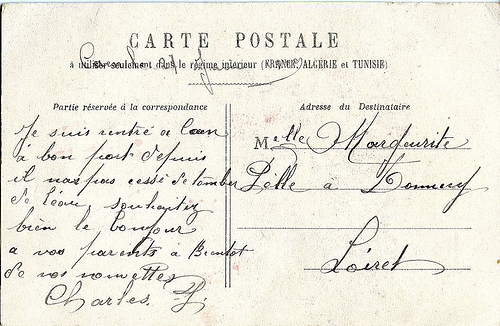 CARTE POSTALE
à utiliser seulement dans le régime intérieur (FRANCE, ALGÉRIE et TUNISIE)
Partie réservée à la correspondance
Je suis rentré a Caen
à bon port depuis
il nas pas cessé de tomber
de l'eau, souhaitez
bien le bonjour
a vos parents à Bientot
de vos nouvelles
Charles
Adresse du Destinataire
Melle Marguerite
a Donnery
Loiret